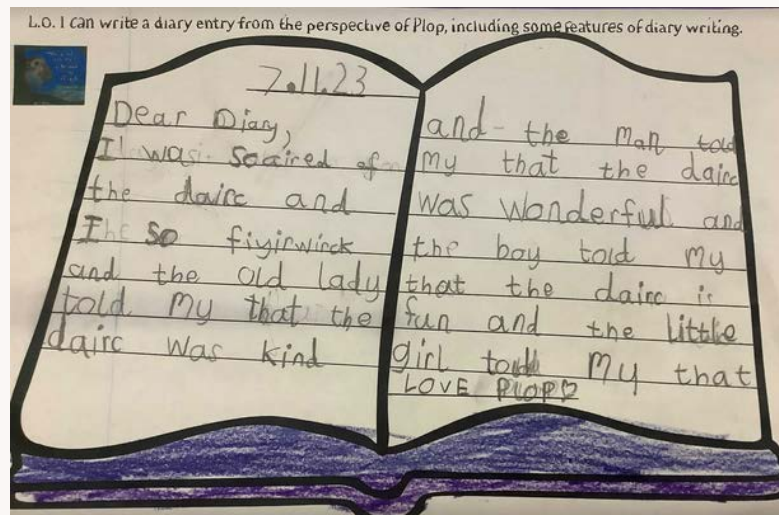 L.O. I can write a diary entry from the perspective of Plop, including some features of diary writing.
7.11.23
Dear Diary,
I was scaired of
the dairc and
I so fiyirwirck
and the old lady
told my that the
dairc was kind
and the man told
my that the dairc
was wonderful and
the boy told my
that the dairc is
fun and the little
girl told my that
LOVE PLOP♡